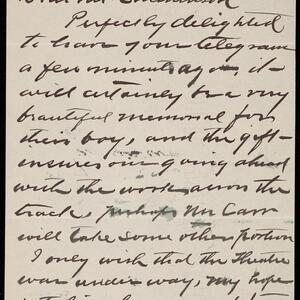 Perfectly delighted
to have your telegram
a few minutes ago, it
will certainly be a very
beautiful memorial for
their boy, and the gift
ensures our going ahead
with the work across the
track, perhaps Mr Carr
will take some other portion
I only wish that the Theatre
was under way, my hope